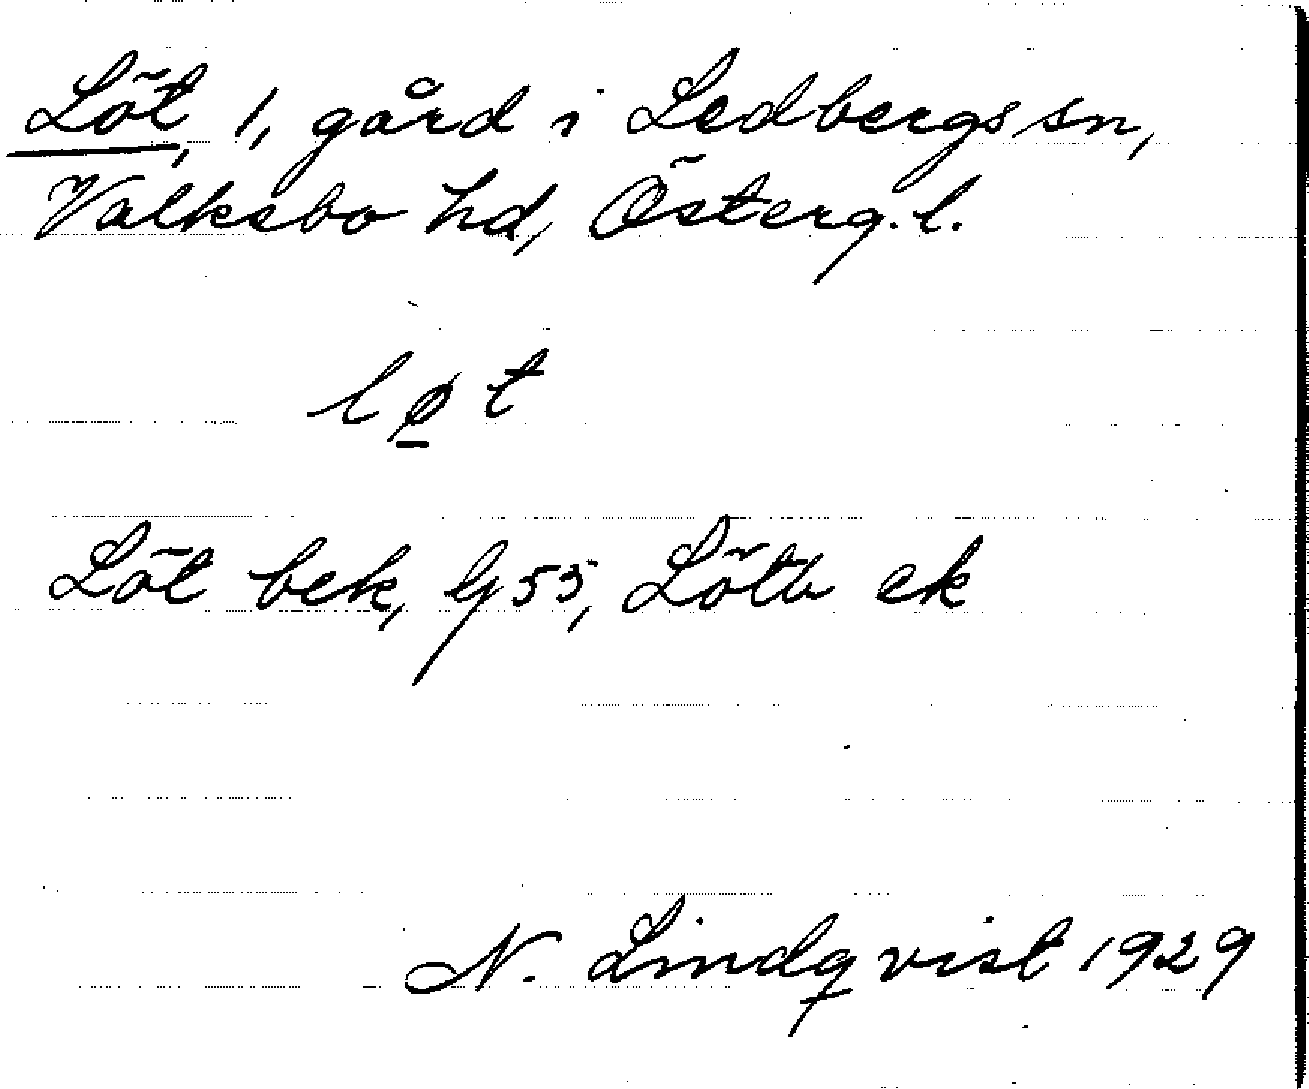 Löt, 1, gård i Ledbergs sn,
Valkebo hd, Österg. l.
lø̱t
Löt bek, G 55, Lötb ek
N. Lindqvist 1929